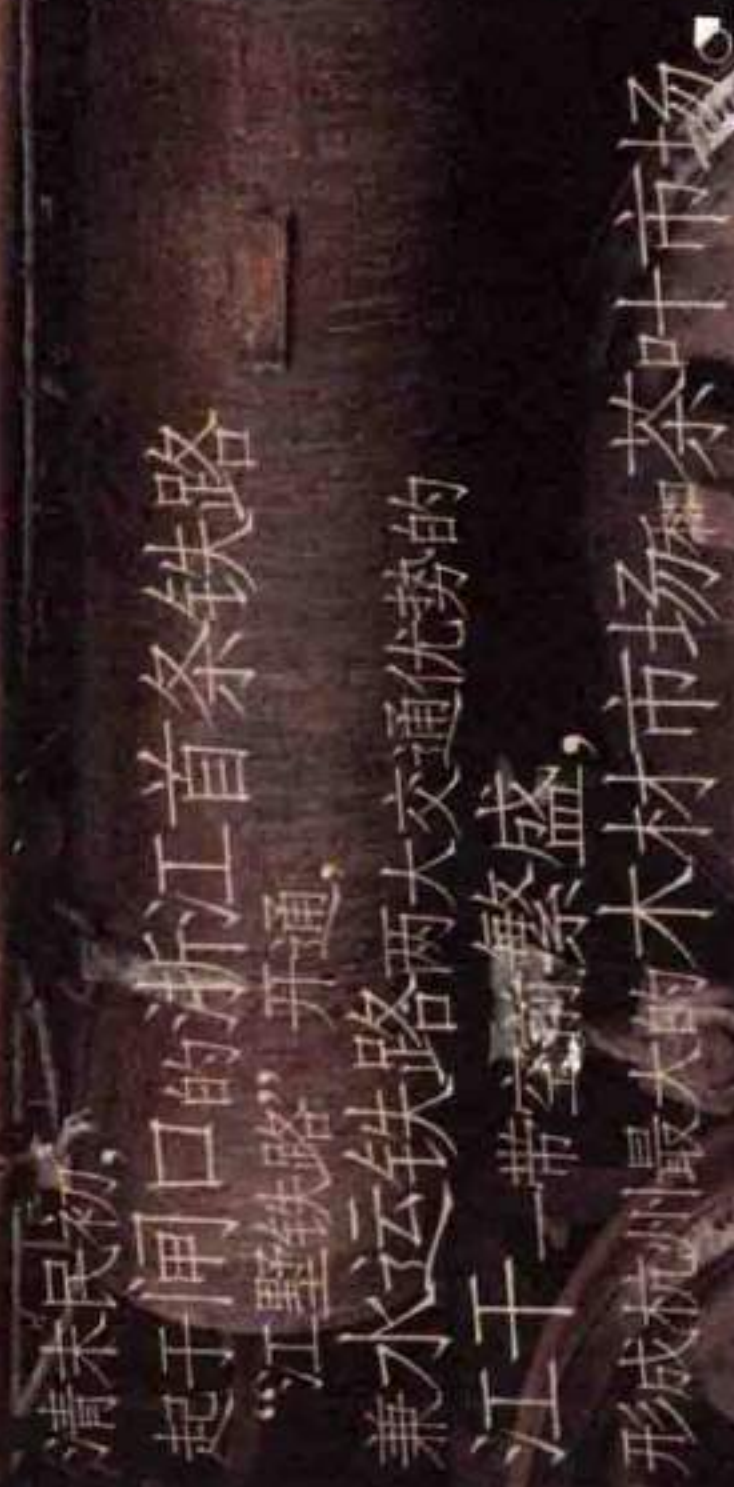 清末民初，
起于闸口的浙江首条铁路
“江墅铁路”开通，
兼水运铁路两大交通优势的
江干一带空前繁盛，
形成杭州最大的木材市场和茶叶市场。